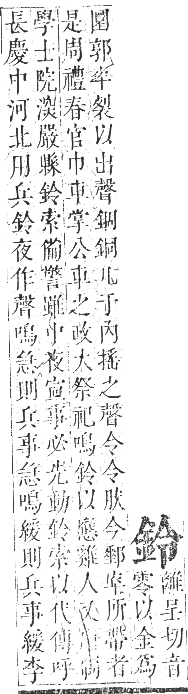 鈴
離呈切音
零以金爲
圜郭半裂以出聲錮銅几子內搖之聲令令肰今郵車所帶者
是周禮春官巾車掌公車之政大祭祀鳴鈴以應雞人又唐制
學士院深嚴縣鈴索備警雖中夜宣事必先動鈴索以代傳呼
長慶中河北用兵鈴夜作聲鳴急則兵事急鳴緩則兵事緩李